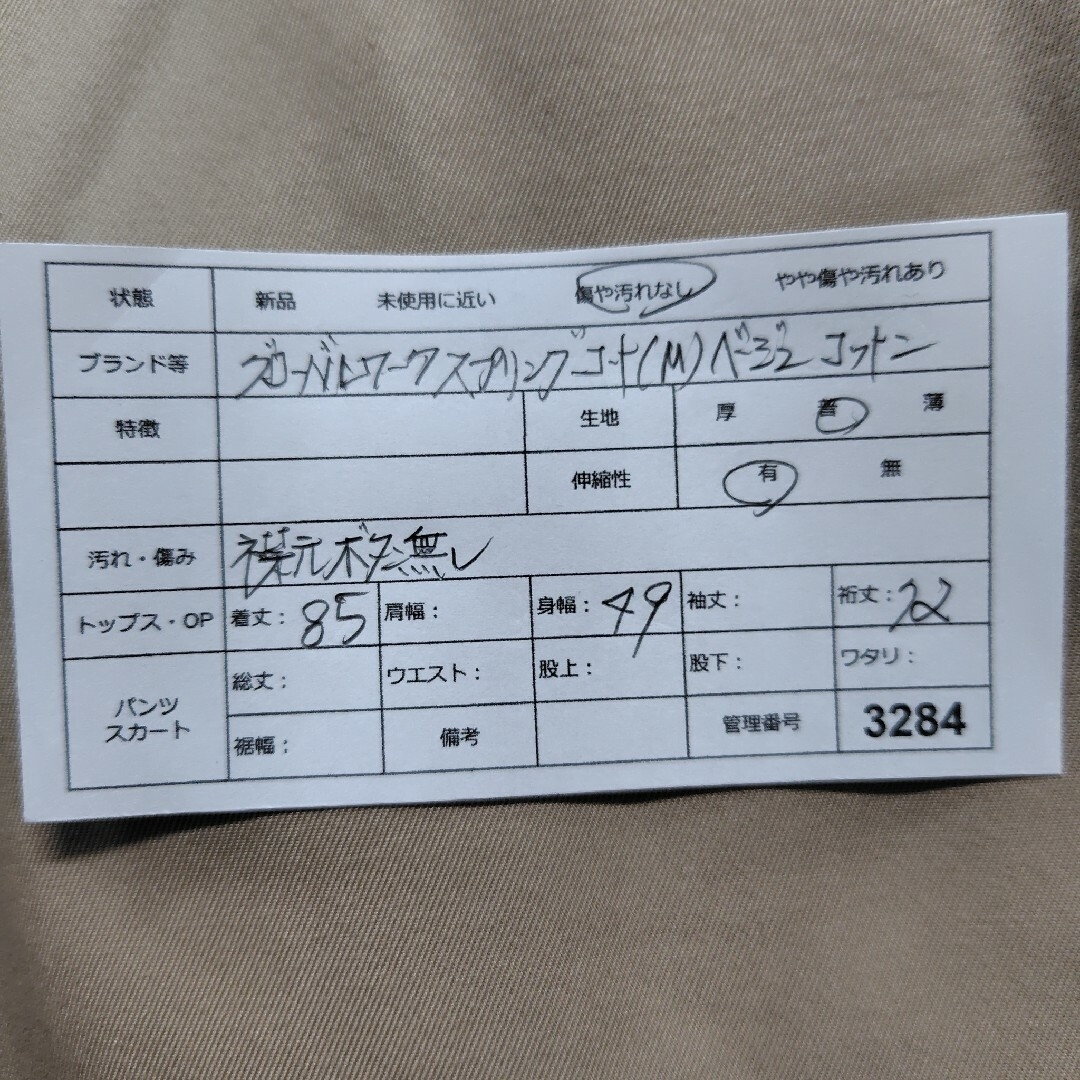 状態 新品 未使用に近い 傷や汚れなし やや傷や汚れあり
ブランド等 グローバルワークスプリングコート(M)ベージュ コットン
特徴 生地 厚 普 薄
伸縮性 有 無
汚れ・傷み 襟元ボタン無し
トップス・OP 着丈: 85 肩幅: 身幅: 49 袖丈: 裄丈: 72
パンツ スカート 総丈: ウエスト: 股上: 股下: ワタリ:
裾幅: 備考 管理番号 3284